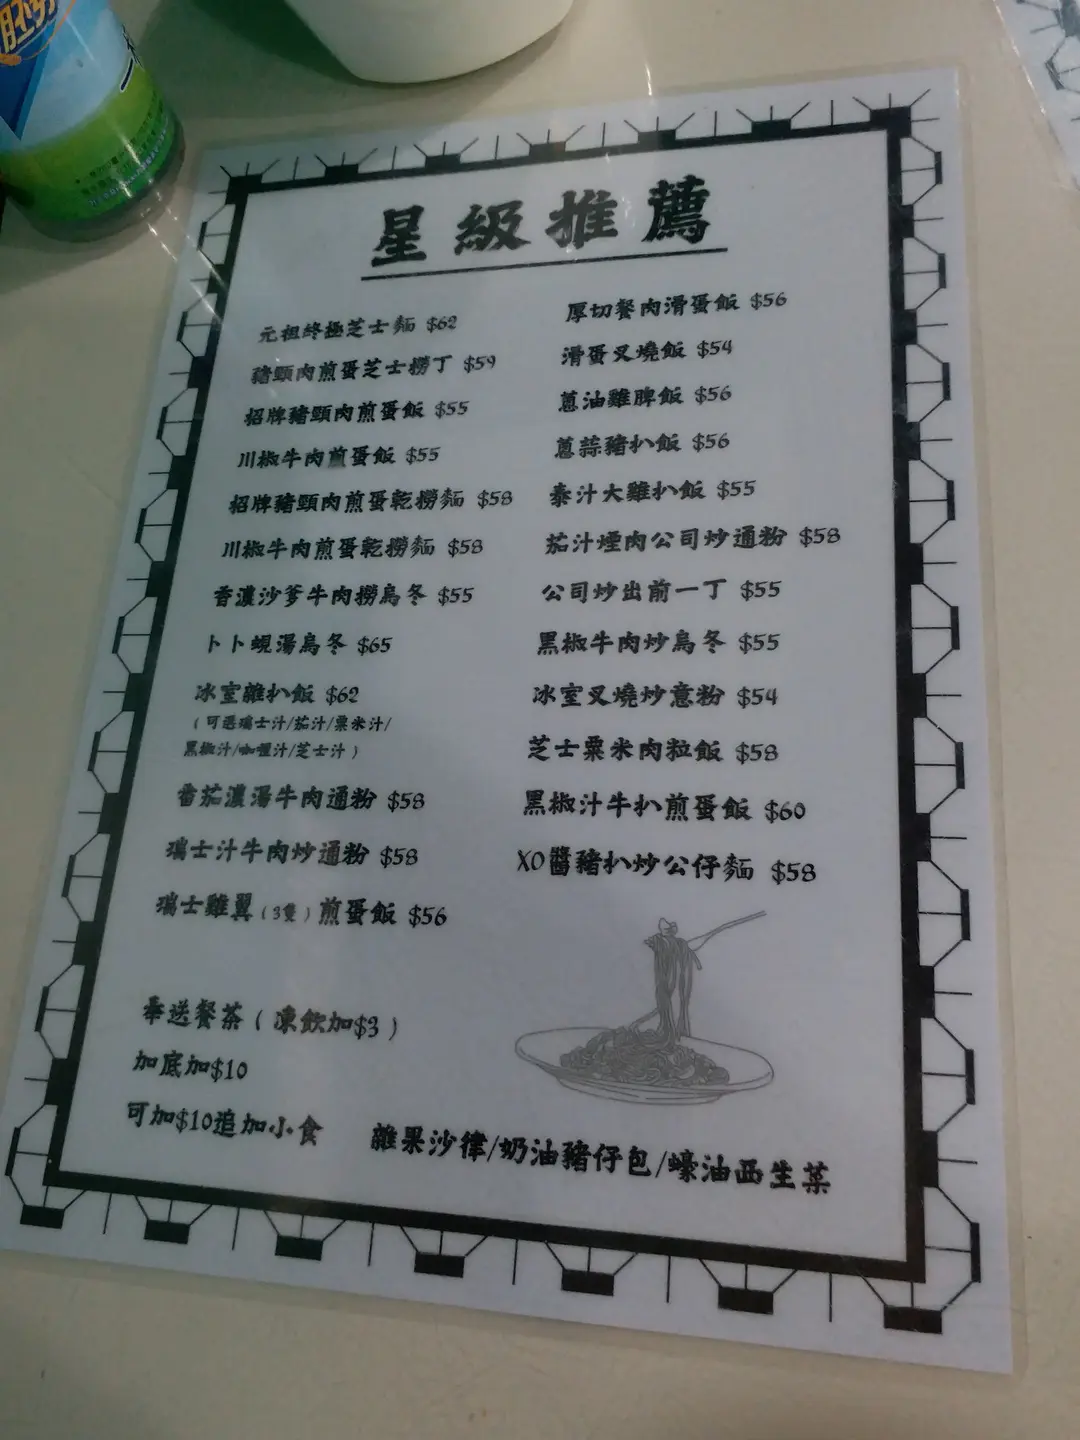 星級推薦
元祖終極芝士麵 $62
豬頸肉煎蛋芝士撈丁 $59
招牌豬頸肉煎蛋飯 $55
川椒牛肉煎蛋飯 $55
招牌豬頸肉煎蛋乾撈麵 $58
川椒牛肉煎蛋乾撈麵 $58
香濃沙爹牛肉撈烏冬 $55
卜卜蜆湯烏冬 $65
冰室雜扒飯 $62
(可選瑞士汁/茄汁/粟米汁/
黑椒汁/咖喱汁/芝士汁)
番茄濃湯牛肉通粉 $58
瑞士汁牛肉炒通粉 $58
瑞士雞翼(3隻)煎蛋飯 $56
厚切餐肉滑蛋飯 $56
滑蛋叉燒飯 $54
蔥油雞脾飯 $56
蔥蒜豬扒飯 $56
泰汁大雞扒飯 $55
茄汁煙肉公司炒通粉 $58
公司炒出前一丁 $55
黑椒牛肉炒烏冬 $55
冰室叉燒炒意粉 $54
芝士粟米肉粒飯 $58
黑椒汁牛扒煎蛋飯 $60
XO醬豬扒炒公仔麵 $58
奉送餐茶(凍飲加$3)
加底加$10
可加$10追加小食
雜果沙律/奶油豬仔包/蠔油西生菜